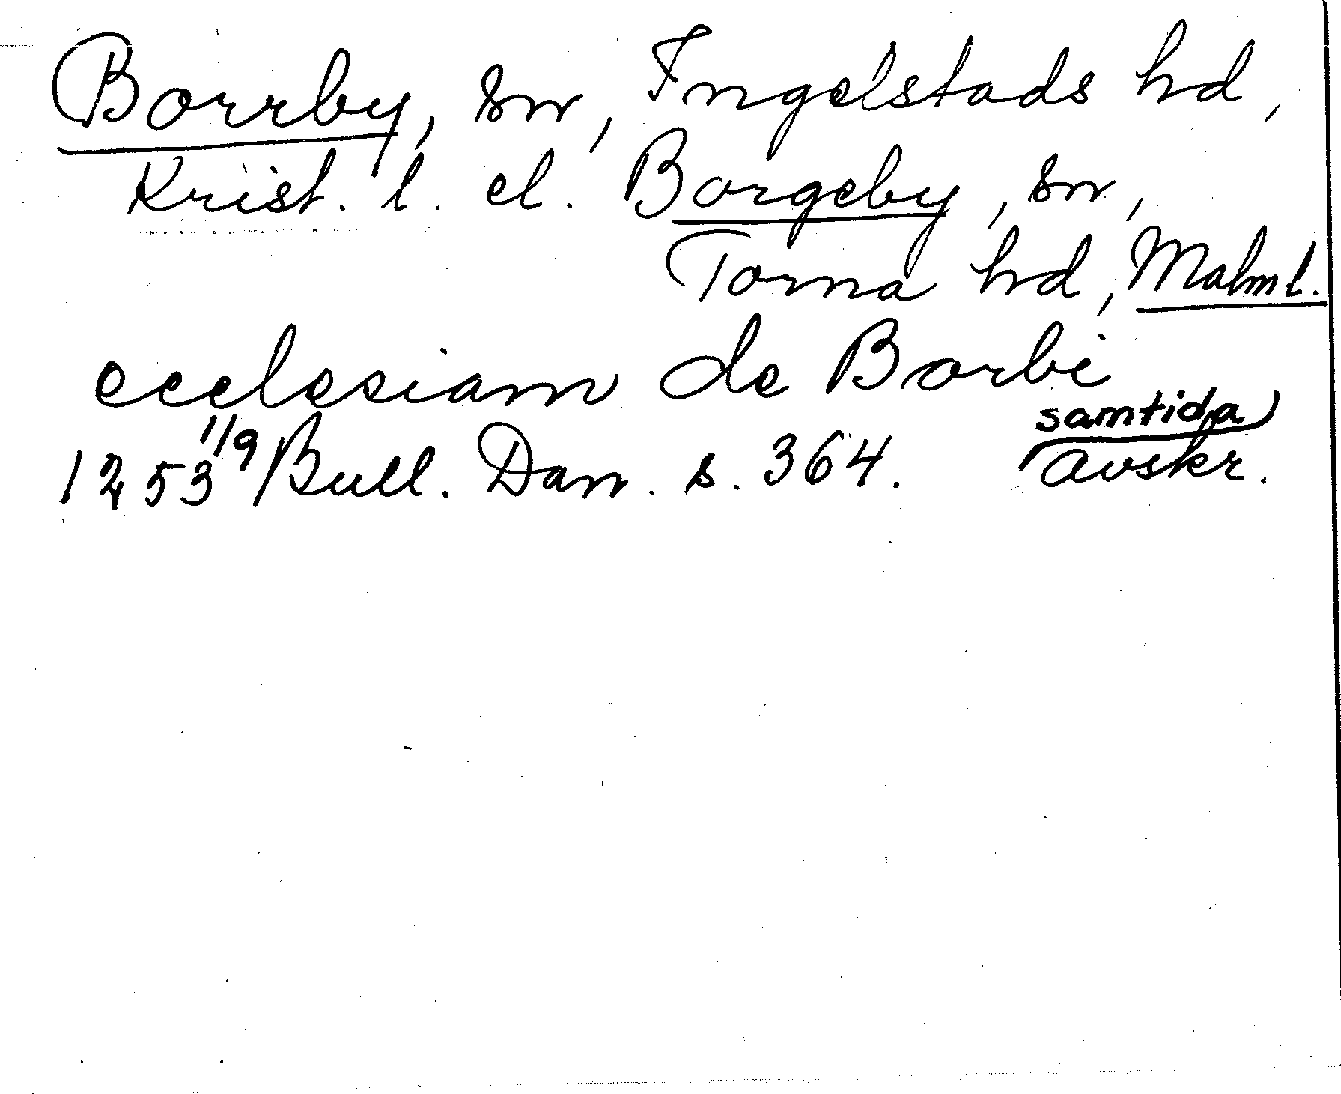 Borrby, sn, Ingelstads hd,
Krist. l. el. Borgeby, sn,
Torna hd, Malm l.
ecclesiam de Borbi
samtida
1253 1/9 Bull. Dan. s. 364. avskr.